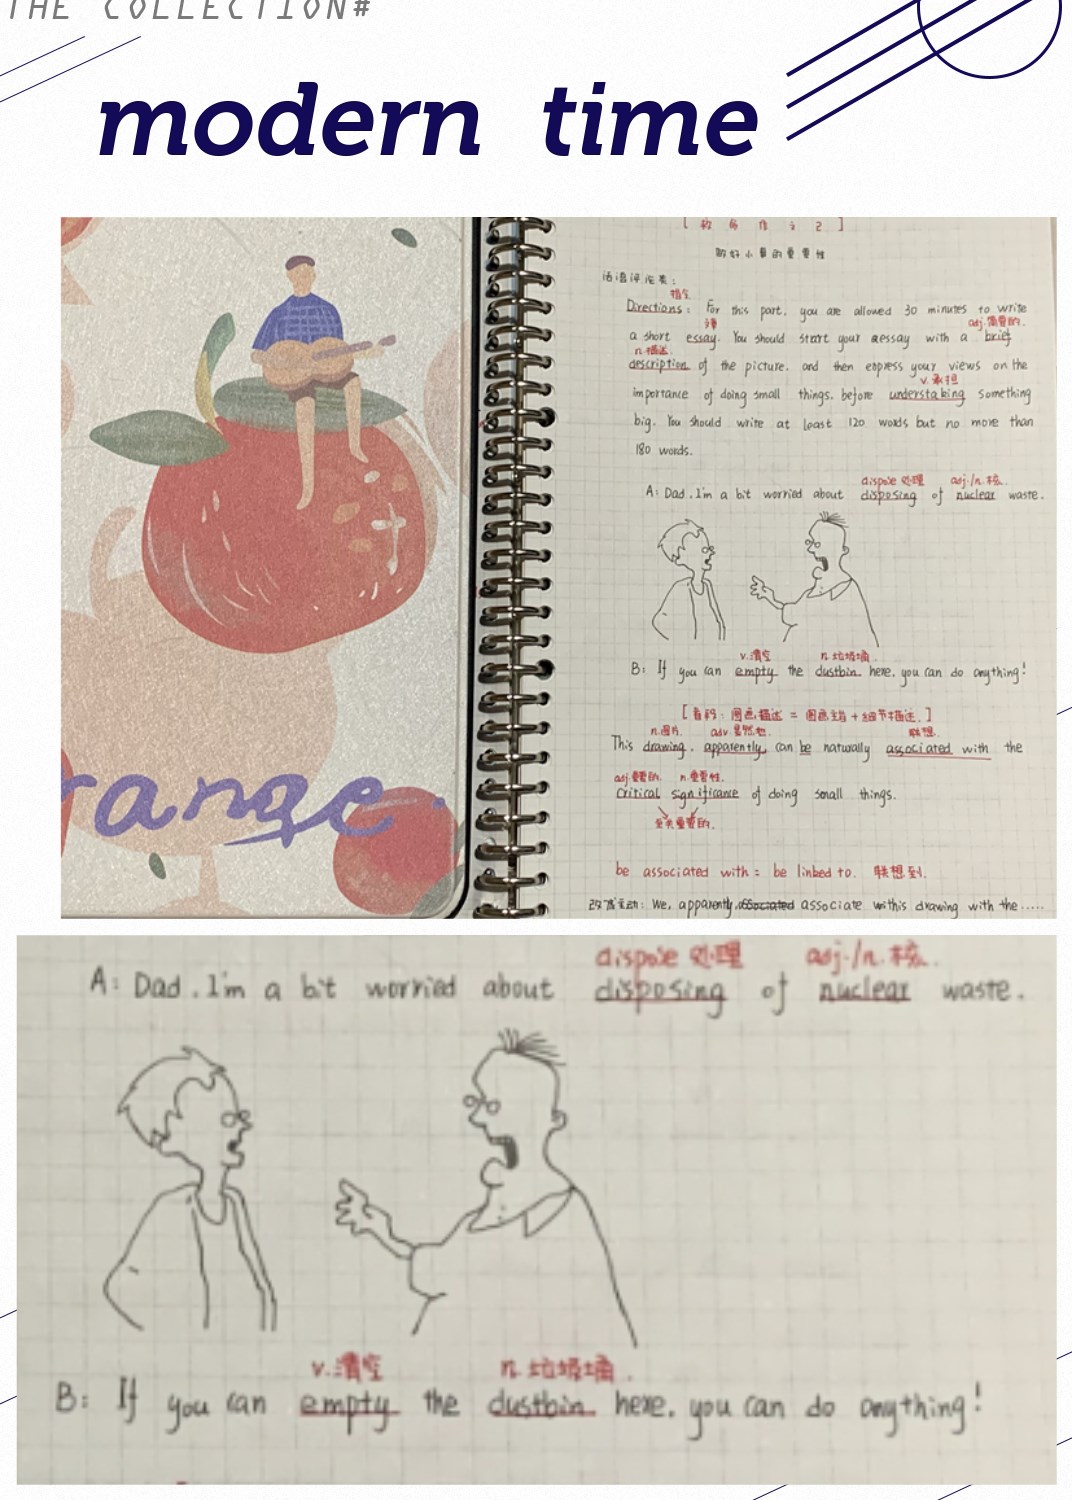 THE COLLECTION#
modern time
range.
做好小事的重要性
话语评论类:
指令
Directions: For this part, you are allowed 30 minutes to write
adj.简要的.
a short essay. You should start your eessay with a brief
n.描述.
description of the picture. and then express your views on the
v.承担
importance of doing small things. before understaking something
big. You should write at least 120 words but no more than
180 words.
dispose 处理 adj./n.核.
A: Dad. I'm a bit worried about disposing of nuclear waste.
v.清空 n.垃圾桶.
B: If you can empty the dustbin here. you can do anything!
[首段: 图画描述 = 图画主旨 + 细节描述.]
n.图片. adv.显然地. 联想.
This drawing. apparently can be naturally associated with the
adj.重要的. n.重要性.
critical significance of doing small things.
至关重要的.
be associated with = be linked to. 联想到.
改为主动: We, apparently, associated associate withis drawing with the .....
dispose 处理 adj./n.核.
A: Dad. I'm a bit worried about disposing of nuclear waste.
v.清空 n.垃圾桶.
B: If you can empty the dustbin here. you can do anything!